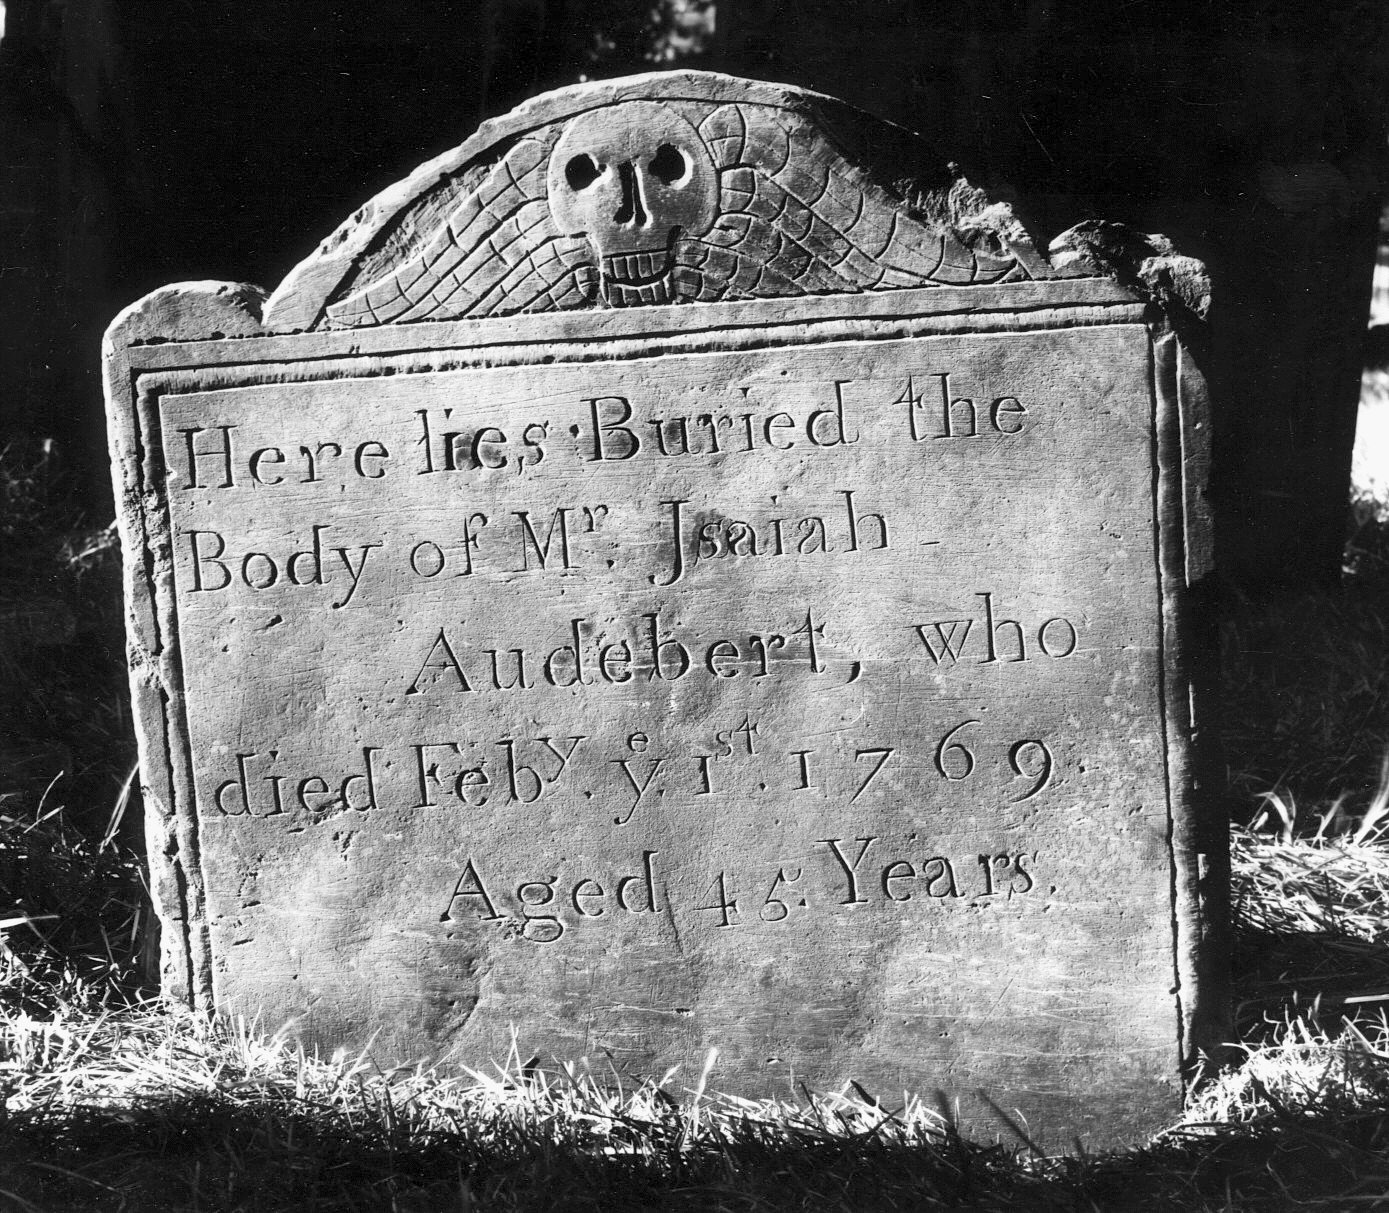 Here lies Buried the
Body of Mr. Jsaiah
Audebert, who
died Feby. ye. 1st. 1769.
Aged 45. Years.